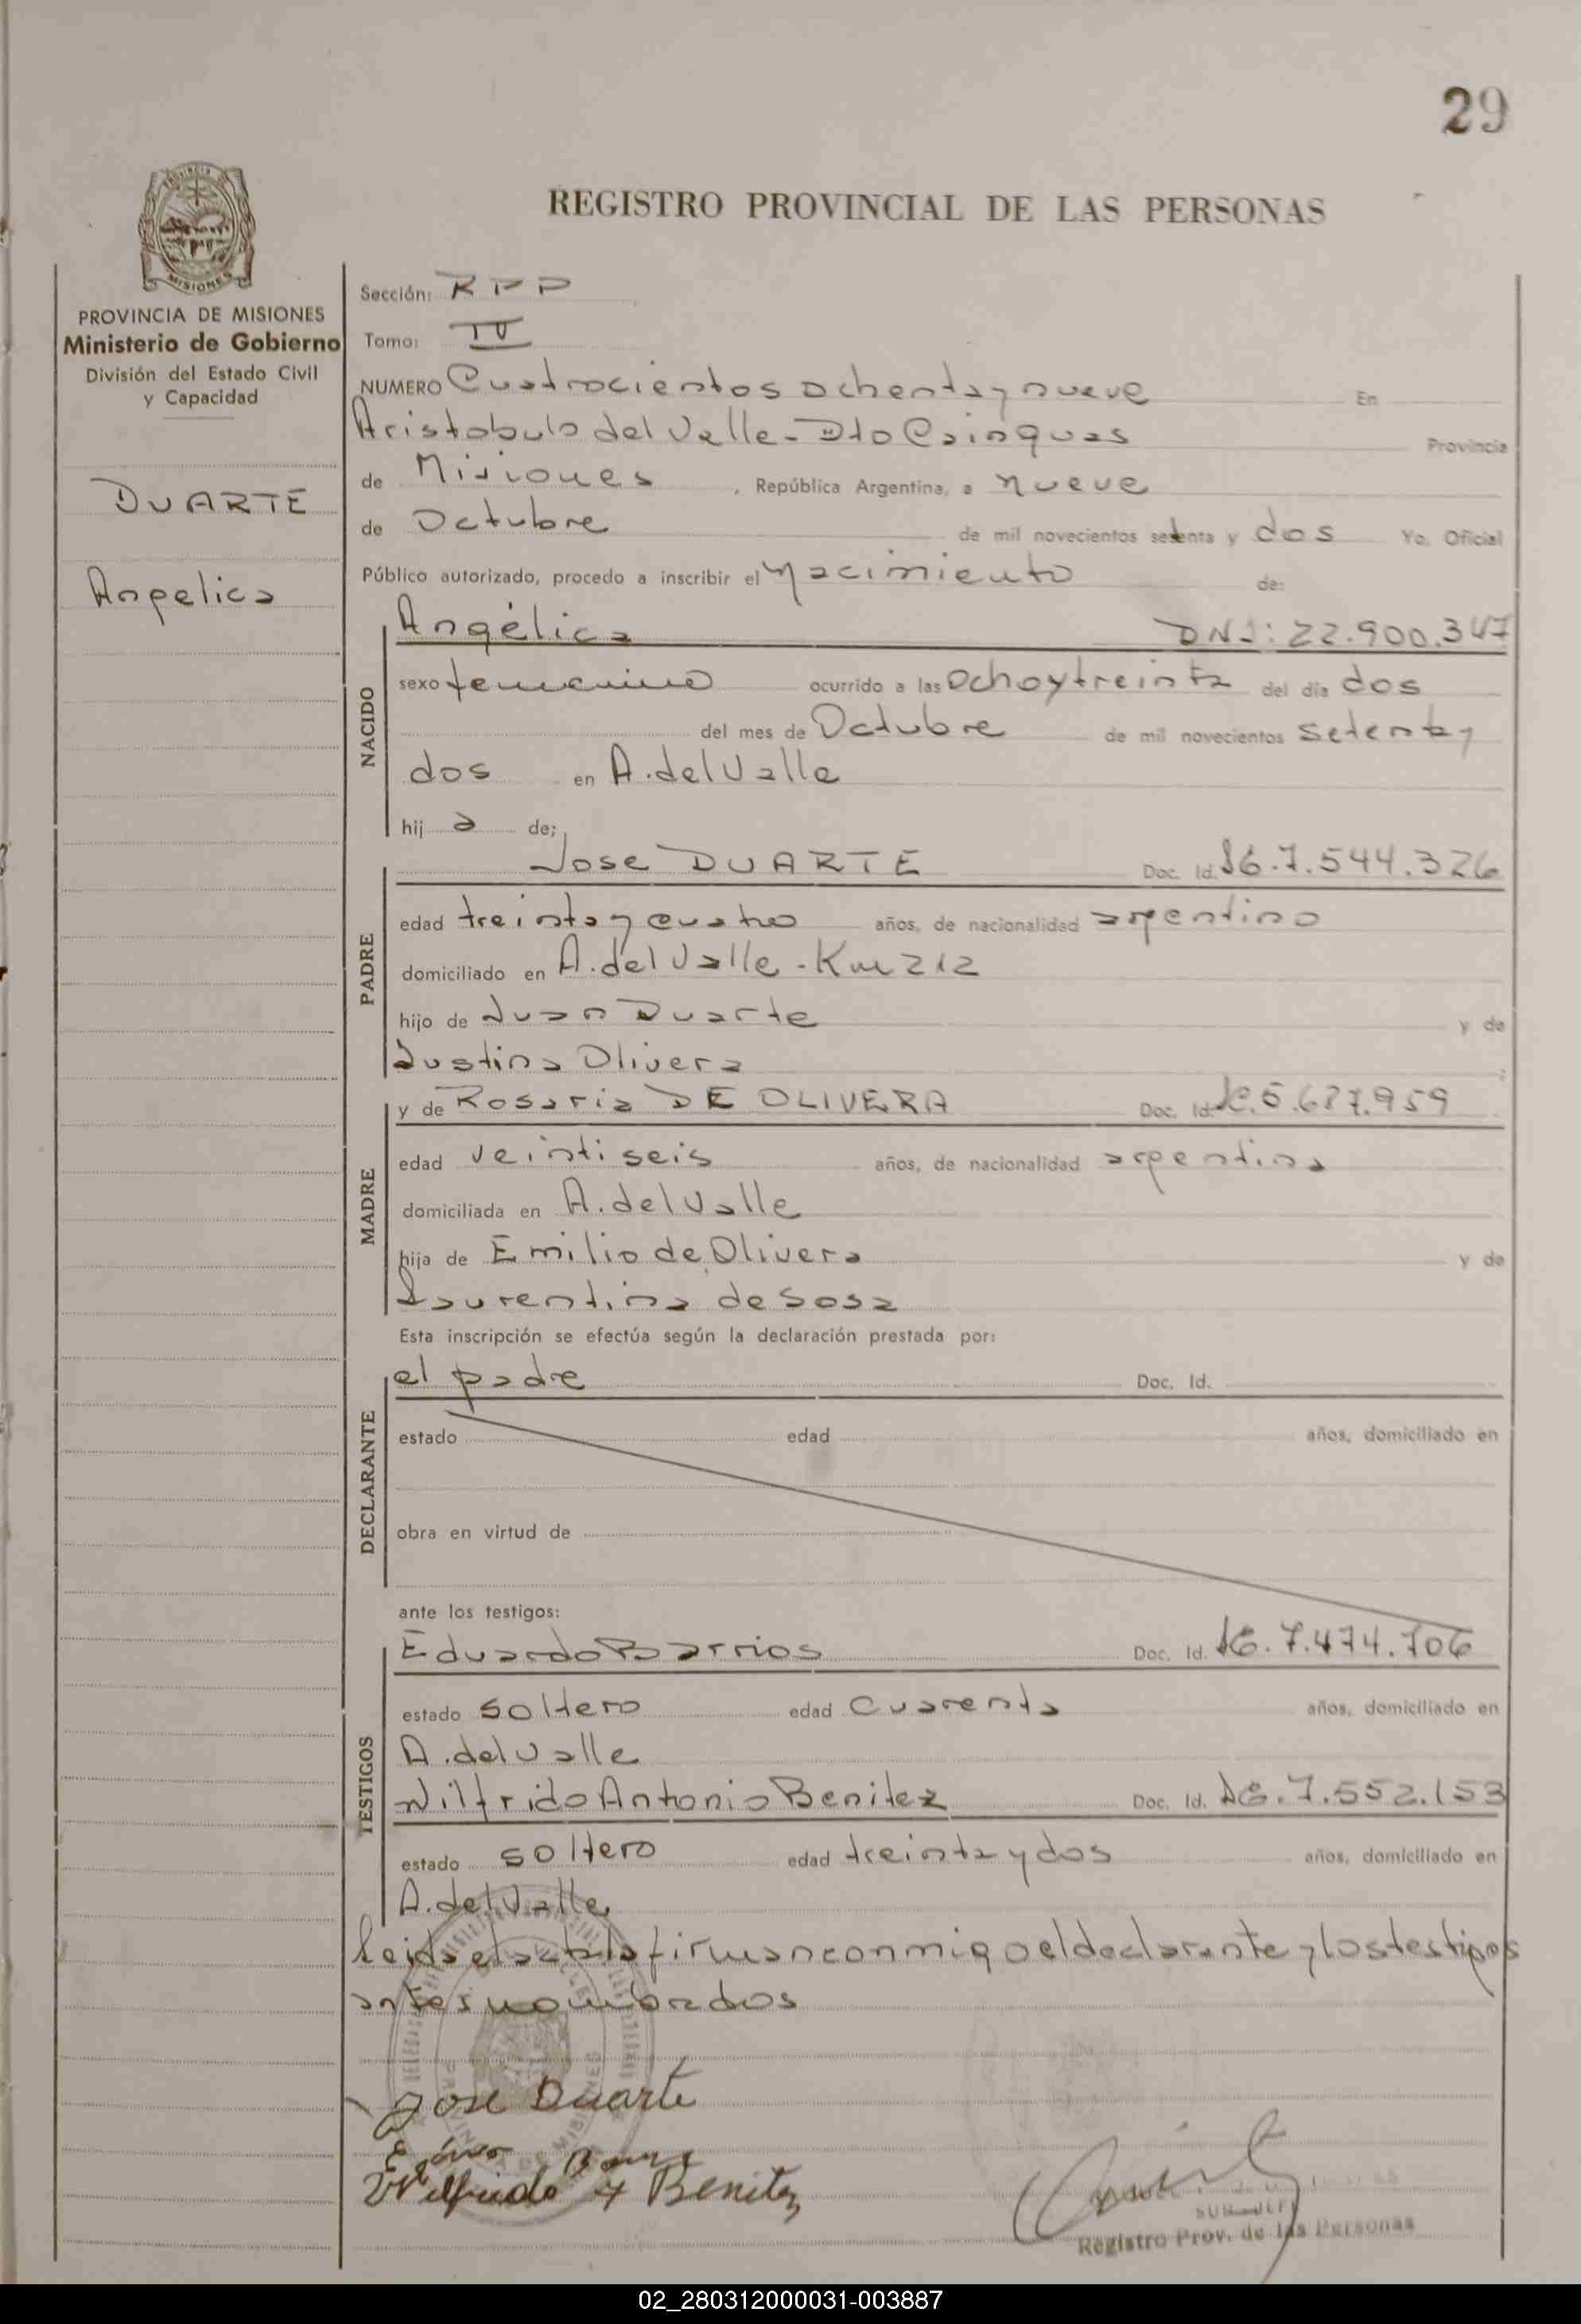 29
REGISTRO PROVINCIAL DE LAS PERSONAS
MISIONES
PROVINCIA DE MISIONES
Ministerio de Gobierno
División del Estado Civil
y Capacidad
DUARTE
Angelica
Sección: RPP
Tomo: IV
NUMERO Cuatrocientos ochenta y nueve En
Aristobulo del Valle - Dto Cainguas Provincia
de Misiones, República Argentina, a nueve
de Octubre de mil novecientos setenta y dos Yo, Oficial
Público autorizado, procedo a inscribir el Nacimiento de:
NACIDO
Angélica DNI: 22.900.347
sexo femenino ocurrido a las ocho y treinta del día dos
del mes de Octubre de mil novecientos setenta y
dos en A. del Valle
hij a de;
PADRE
Jose DUARTE Doc. Id. 7.544.326
edad treinta y cuatro años, de nacionalidad argentino
domiciliado en A. del Valle - Km 212
hijo de Juan Duarte y de
Justina Olivera
MADRE
y de Rosaria DE OLIVERA Doc. Id.
edad veintiseis años, de nacionalidad argentina
domiciliada en A. del Valle
hija de Emilio de Olivera y de
Laurentina de Sosa
Esta inscripción se efectúa según la declaración prestada por:
DECLARANTE
el padre Doc. Id.
estado edad años, domiciliado en
obra en virtud de
ante los testigos:
TESTIGOS
Eduardo Barrios Doc. Id. 7.474.706
estado soltero edad cuarenta años, domiciliado en
A. del Valle
Wilfrido Antonio Benitez Doc. Id. 7.552.153
estado soltero edad treinta y dos años, domiciliado en
A. del Valle
Leida el acta la firman conmigo el declarante y los testigos
antes nombrados
Jose Duarte
Wilfrido A Benitez
Registro Prov. de las Personas
02_280312000031-003887